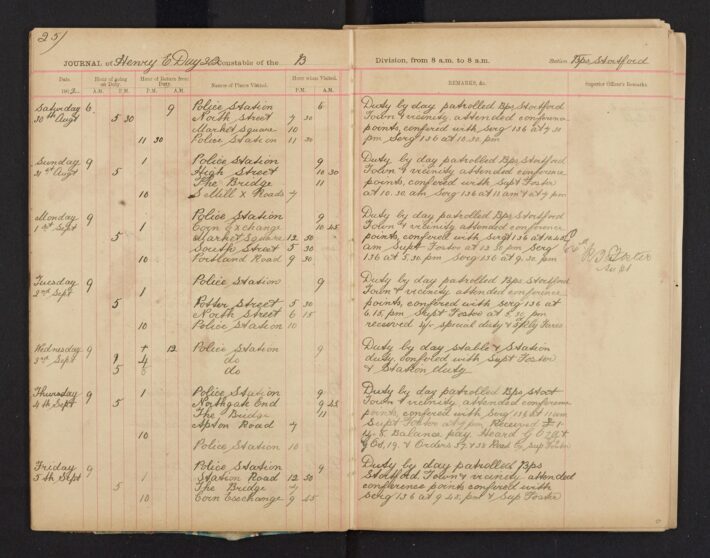 251
JOURNAL of Henry E. Day Constable of the B Division, from 8 a.m. to 8 a.m. Station Bps Stortford
Date. Hour of going on Duty. Hour of Return from Duty. Names of Places Visited. Hour when Visited. REMARKS, &c. Superior Officer's Remarks
190 A.M. P.M. A.M. P.M. P.M. A.M.
Saturday 6 9 Police Station 6 Duty by day patrolled Bps Stortford
30th Augt 5 30 North Street 7 30 Town & vicinity, attended conference
Market Square 10 points, confered with Serg 136 at 7.30
11 30 Police Station 11 30 pm Serg 136 at 10.30 pm
Sunday 9 1 Police Station 9 Duty by day patrolled Bps Stortford
Augt 5 High Street 10 30 Town & vicinity attended conference
The Bridge 11 points, confered with Supt Foster
10 Mill X Roads 7 at 10.30 am, Serg 136 at 11 am & at 9 pm
Monday 9 Police Station 9 Duty by day patrolled Bps Stortford
1st Sept 1 Corn Exchange 10 45 Town & vicinity attended conference
5 Market Square 12 30 points, confered with Serg 136 at 10.45
South Street 5 30 am Supt Foster at 12.30 pm Serg
10 Portland Road 9 30 136 at 5.30 pm Serg 136 at 9.30 pm
Tuesday 9 1 Police Station 9 Duty by day patrolled Bps Stortford
2nd Sept Town & vicinity attended conference
5 Potter Street 5 30 points, confered with Serg 136 at
North Street 6 15 6.15 pm Supt Foster at 5.30 pm
10 Police Station 10 received special duty &
Wednesday 9 12 Police Station 9 Duty by day stable & Station
3rd Sept 9 4 do duty, confered with Supt Foster
5 do & Station duty
Thursday 9 1 Police Station 9 Duty by day patrolled Bps Stort
4th Sept 5 Northgate End 9 45 Town & vicinity, attended conference
The Bridge 11 points, confered with Serg 136 at 11 am
Apton Road 7 Supt Foster at 7 pm Received £1
10 Balance pay. Heard
Police Station 10 Orders
Friday 9 Police Station 9 Duty by day patrolled Bps
5th Sept 1 Station Road 12 30 Stortford, Town & vicinity attended
5 The Bridge 7 conference points confered with
10 Corn Exchange 9 45 Serg 136 at 9.45 pm & Sup Foster